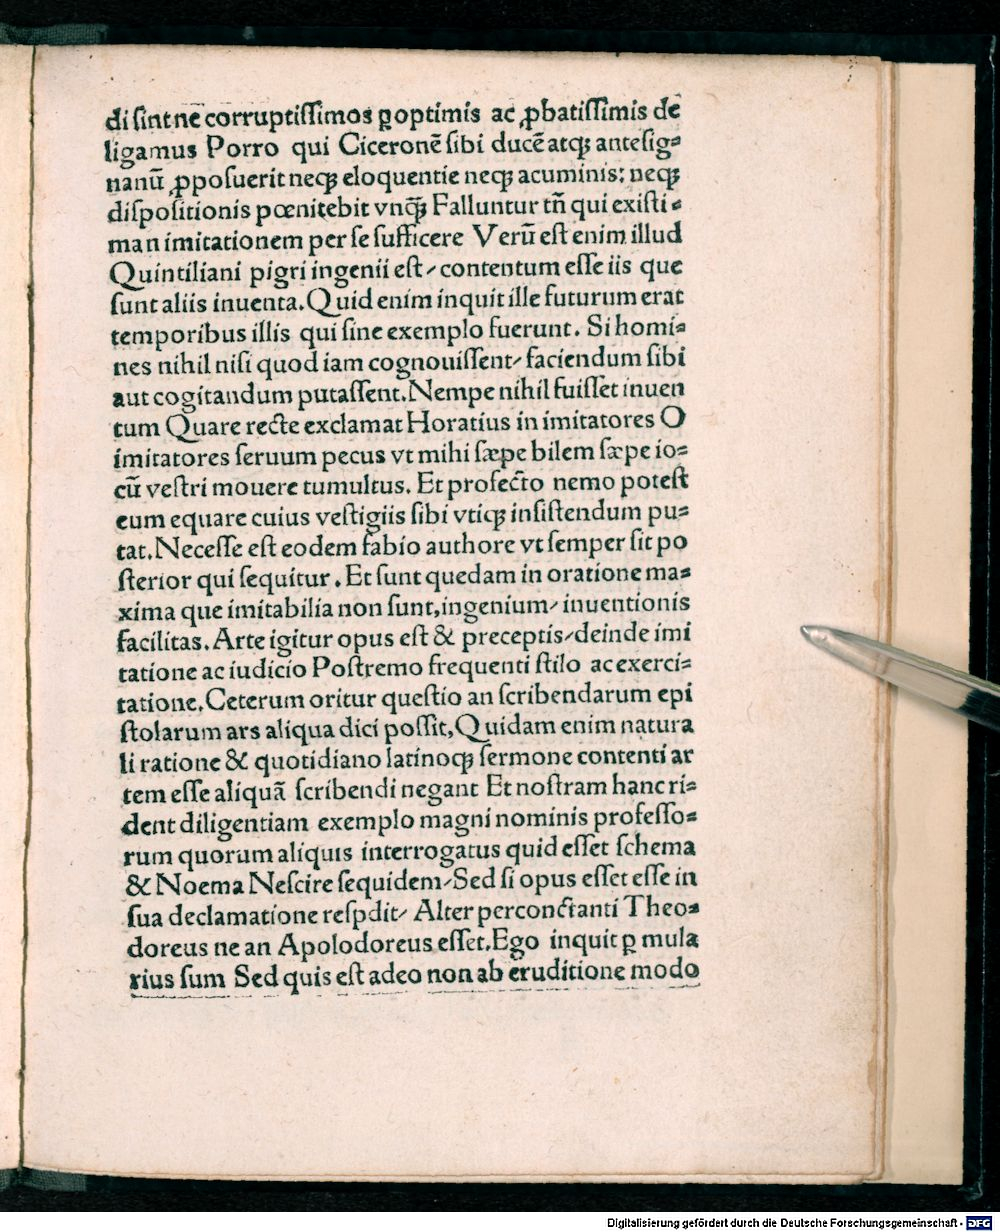 di ſint ne corruptiſſimos ꝑoptimis ac ꝓbatiſſimis de
ligamus Porro qui Ciceronē ſibi ducē atqꝫ anteſig⸗
nanū ꝓpoſuerit neqꝫ eloquentie neqꝫ acuminis: neqꝫ
diſpoſitionis pœnitebit vnqꝫ̄ Falluntur tñ qui exiſti⸗
man imitationem per ſe ſufficere Verū eſt enim illud
Quintiliani pigri ingenii eſt⸍ contentum eſſe iis que
ſunt aliis inuenta. Quid enim inquit ille futurum erat
temporibus illis qui ſine exemplo fuerunt. Si homi⸗
nes nihil niſi quod iam cognouiſſent⸍ faciendum ſibi
aut cogitandum putaſſent. Nempe nihil fuiſſet inuen
tum Quare recte exclamat Horatius in imitatores O
imitatores ſeruum pecus vt mihi ſæpe bilem ſæpe io⸗
cū veſtri mouere tumultus. Et profecto nemo poteſt
eum equare cuius veſtigiis ſibi vtiqꝫ inſiſtendum pu⸗
tat. Neceſſe eſt eodem fabio authore vt ſemper ſit po
ſterior qui ſequitur. Et ſunt quedam in oratione ma⸗
xima que imitabilia non ſunt, ingenium⸍ inuentionis
facilitas. Arte igitur opus eſt & preceptis⸍ deinde imi
tatione ac iudicio Poſtremo frequenti ſtilo ac exerci⸗
tatione. Ceterum oritur queſtio an ſcribendarum epi
ſtolarum ars aliqua dici poſſit, Quidam enim natura
li ratione & quotidiano latinoqꝫ ſermone contenti ar
tem eſſe aliquā ſcribendi negant Et noſtram hanc ri⸗
dent diligentiam exemplo magni nominis profeſſo⸗
rum quorum aliquis interrogatus quid eſſet ſchema
& Noema Neſcire ſequidem⸍ Sed ſi opus eſſet eſſe in
ſua declamatione reſpdit⸍ Alter perconctanti Theo⸗
doreus ne an Apolodoreus eſſet. Ego inquit ꝑ mula
rius ſum Sed quis eſt adeo non ab eruditione modo
Digitalisierung gefördert durch die Deutsche Forschungsgemeinschaft - DFG